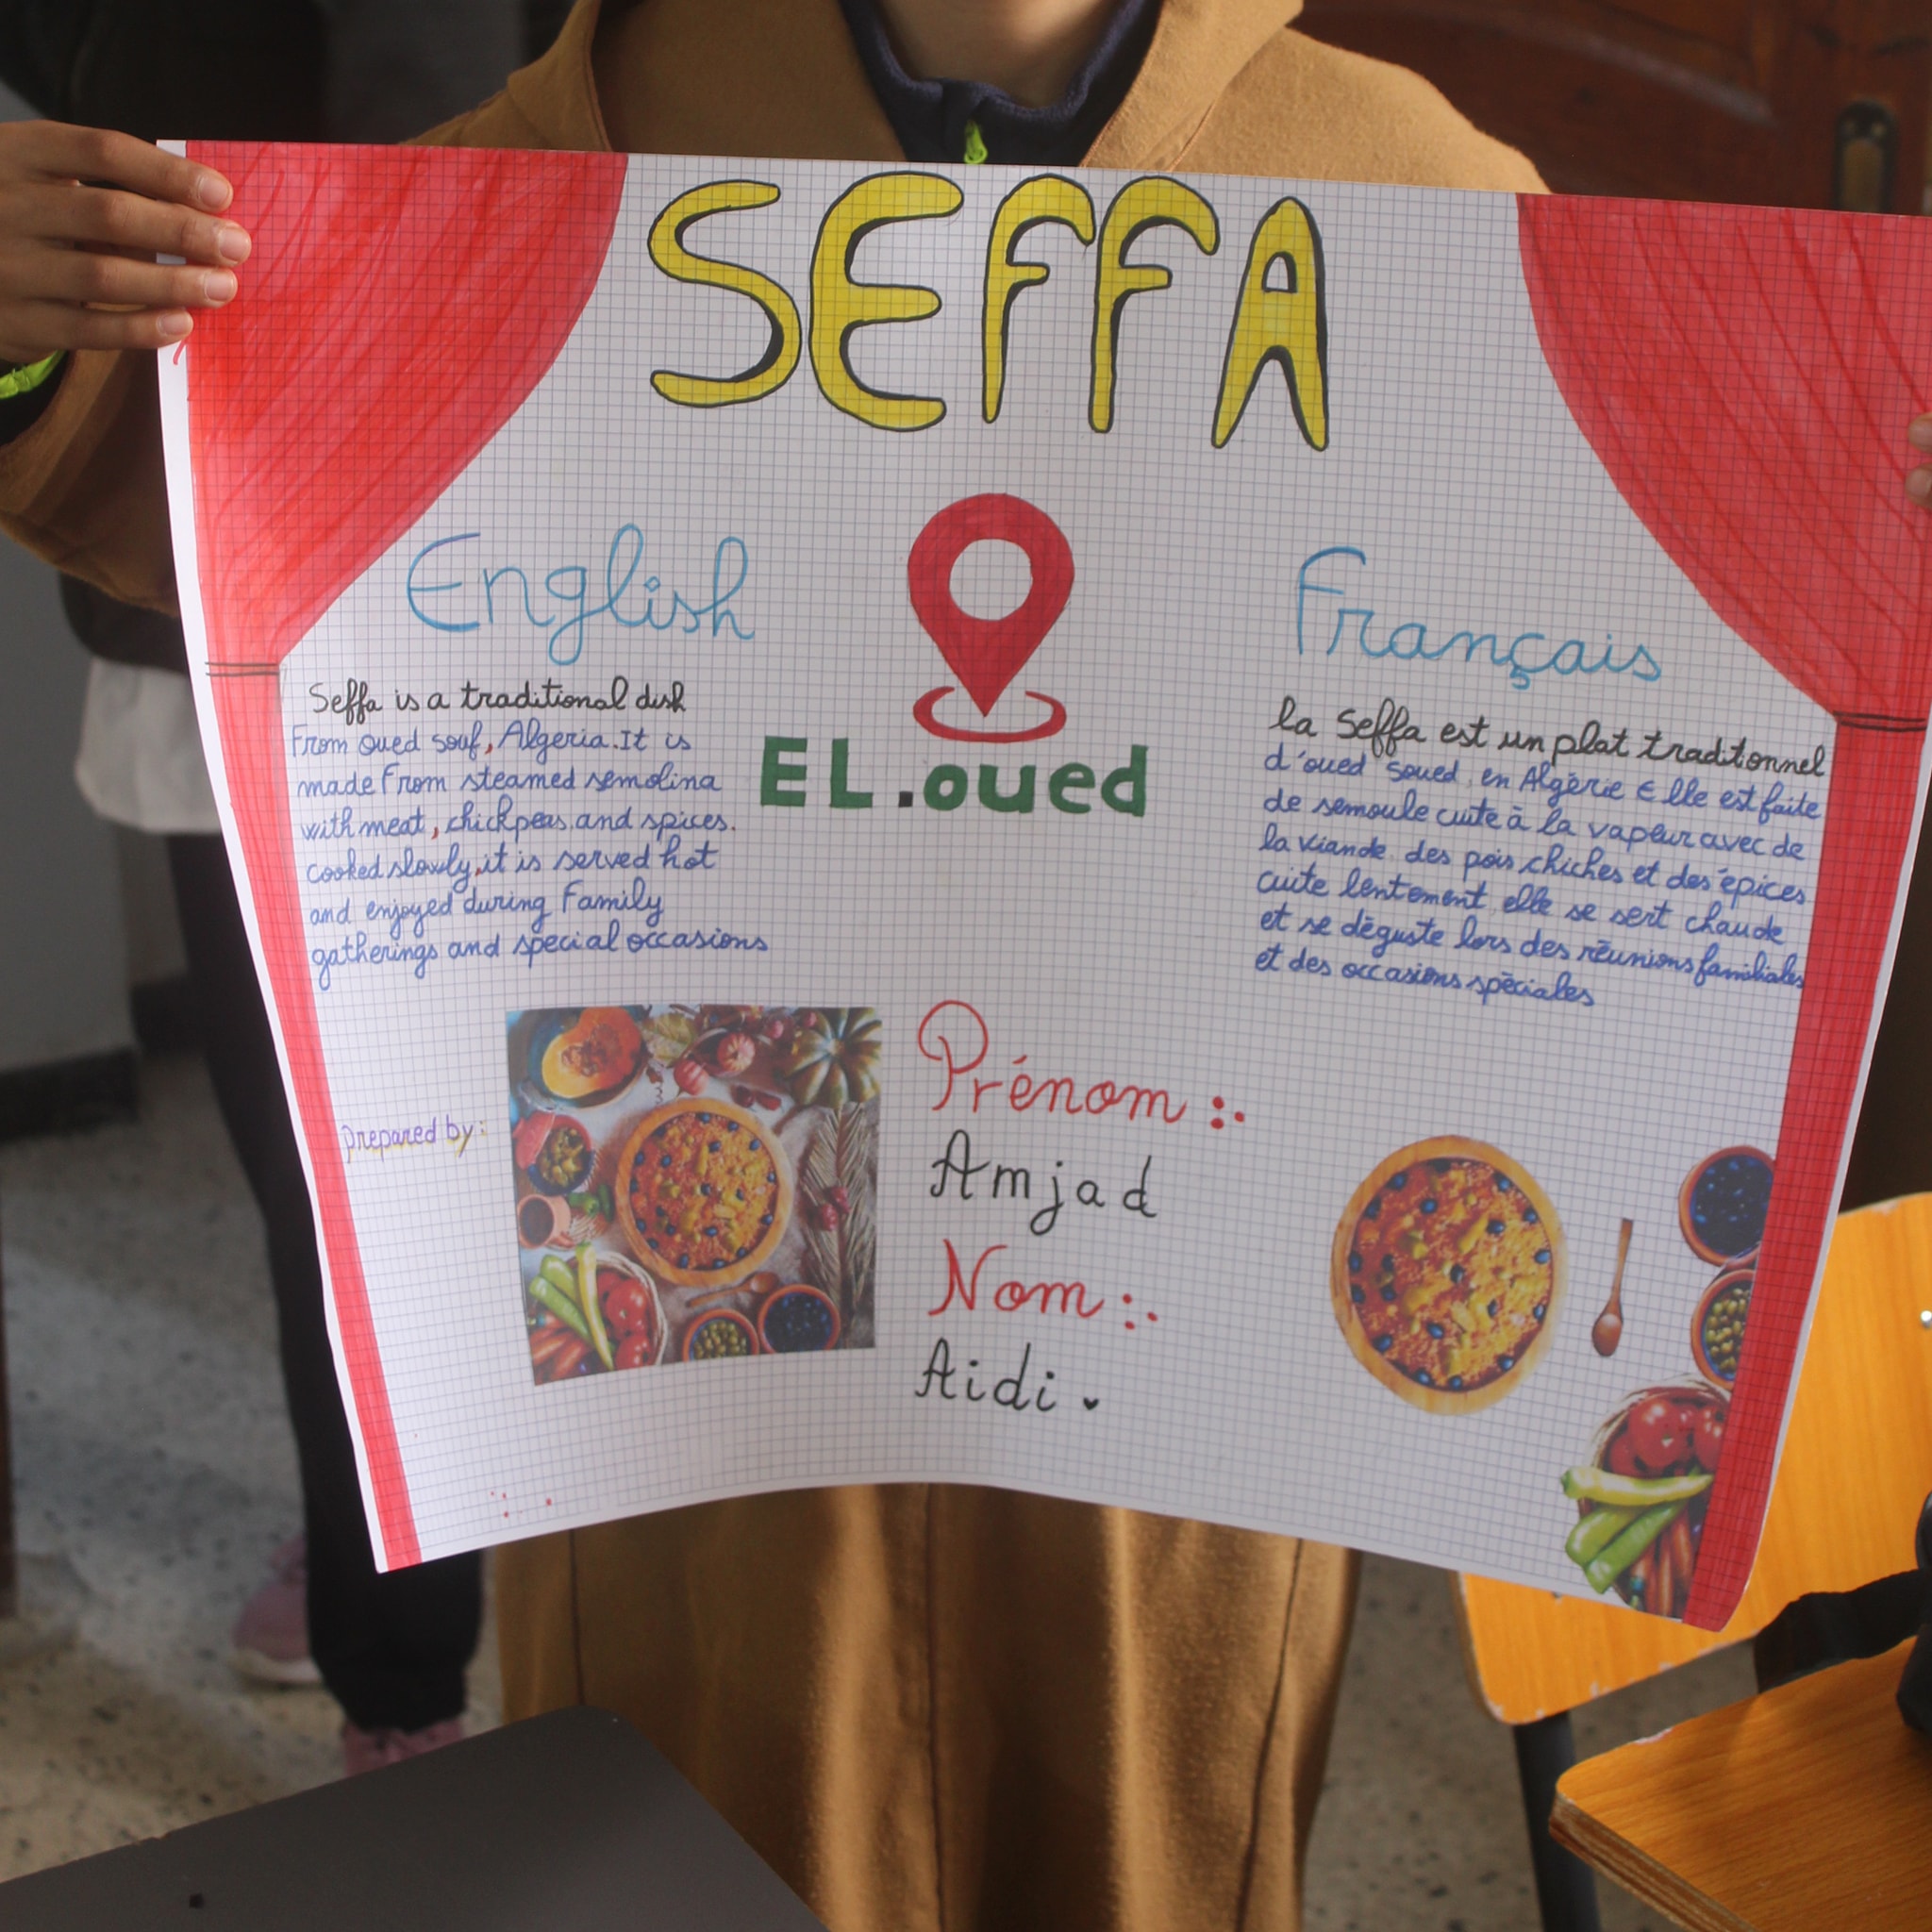 SEFFA
English
Seffa is a traditional dish
From oued souf, Algeria. It is
made From steamed semolina
with meat, chickpeas and spices.
cooked slowly, it is served hot
and enjoyed during Family
gatherings and special occasions
EL.oued
Français
la Seffa est un plat traditonnel
d'oued soued, en Algérie Elle est faite
de semoule cuite à la vapeur avec de
la viande, des pois chiches et des épices
cuite lentement, elle se sert chaude
et se déguste lors des réunions familiales
et des occasions spéciales
prepared by:
Prénom :.
Amjad
Nom :.
Aidi.